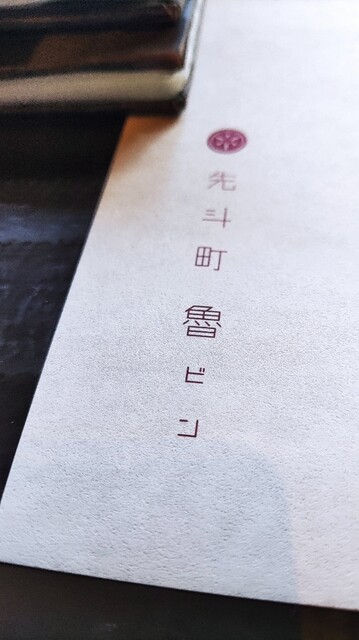 先斗町 魯ビン